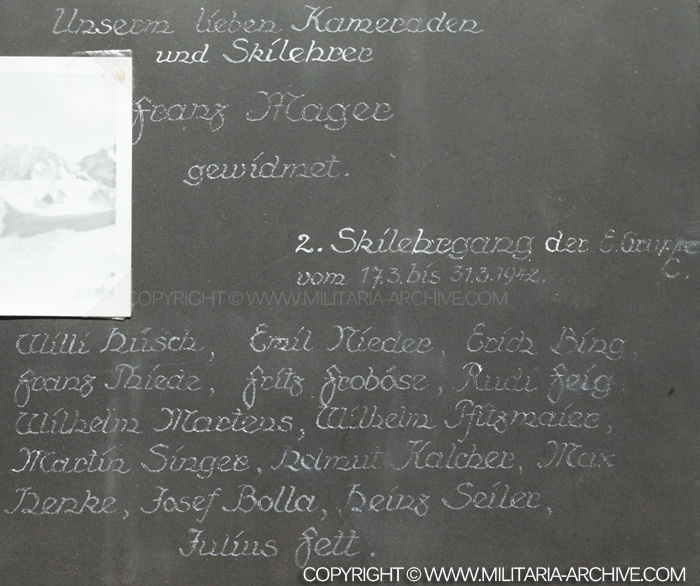 Unserm lieben Kameraden
und Skilehrer
Franz Mager
gewidmet.
2. Skilehrgang der E. Gruppe
C.
vom 17.3. bis 31.3.1942.
COPYRIGHT © WWW.MILITARIA-ARCHIVE.COM
Willi Hüsch, Emil Nieder, Erich Bing,
Franz Thiede, Fritz Froböse, Rudi Feig
Wilhelm Martens, Wilhelm Pfitzmaier,
Martin Singer, Helmut Kalcher, Max
Henke, Josef Bolla, Heinz Seiler,
Julius Fett.
COPYRIGHT © WWW.MILITARIA-ARCHIVE.COM